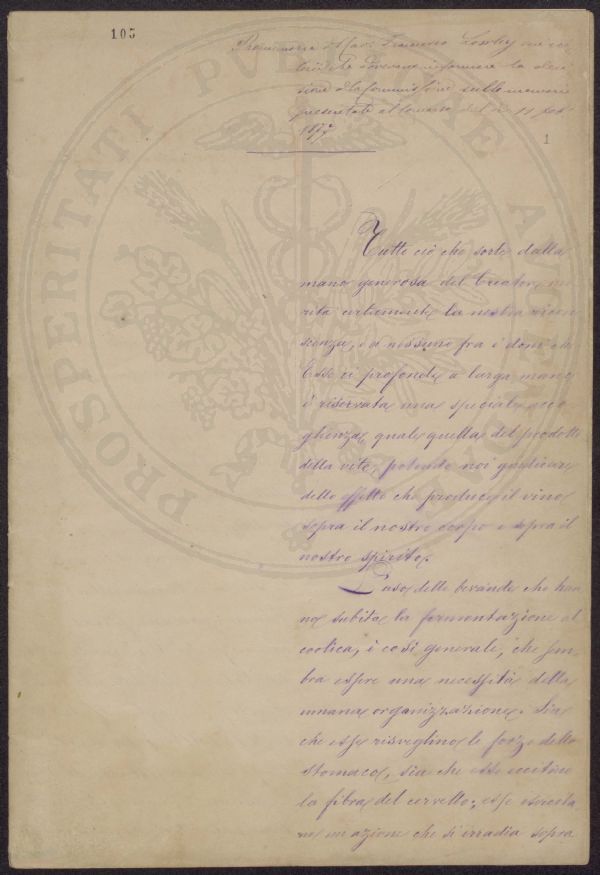 105
Promemoria
informare la
sione della Commissione sulle memorie
presentate al
1877
1
Tutto ciò che sorte dalla
mano generosa del Creatore me-
rita certamente la nostra ricono-
scenza, e a nessuno fra i doni che
Esso ci profonde a larga mano
è riservata una speciale acco-
glienza, quale quella del prodotto
della vite, potendo noi giudicare
dello effetto che produce il vino
sopra il nostro corpo e sopra il
nostro spirito.
L'uso delle bevande che han-
no subita la fermentazione al-
coolica, è così generale, che sem-
bra essere una necessità della
umana organizzazione. Sia
che esse risveglino le forze dello
stomaco, sia che esse eccitino
la fibra del cervello, esse esercita-
no un'azione che si irradia sopra
PROSPERITATI PUBLICAE AUGENDAE